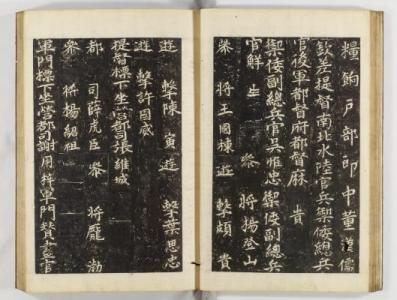 糧餉戶部郎中董漢儒
欽差提督南北水陸官兵禦倭總兵
官後軍都督府都督麻　貴
禦倭副總兵官吳惟忠禦倭副總兵
官解　生　參　將楊登山
參　將王國棟　遊　擊頗　貴
遊　擊陳　寅　遊　擊葉思忠
遊　擊許國威
提督標下坐營都司張維城
都　司薛虎臣　參　將龐　渤
參　將楊紹祖
軍門標下坐營都司謝用梓軍門贊畫官